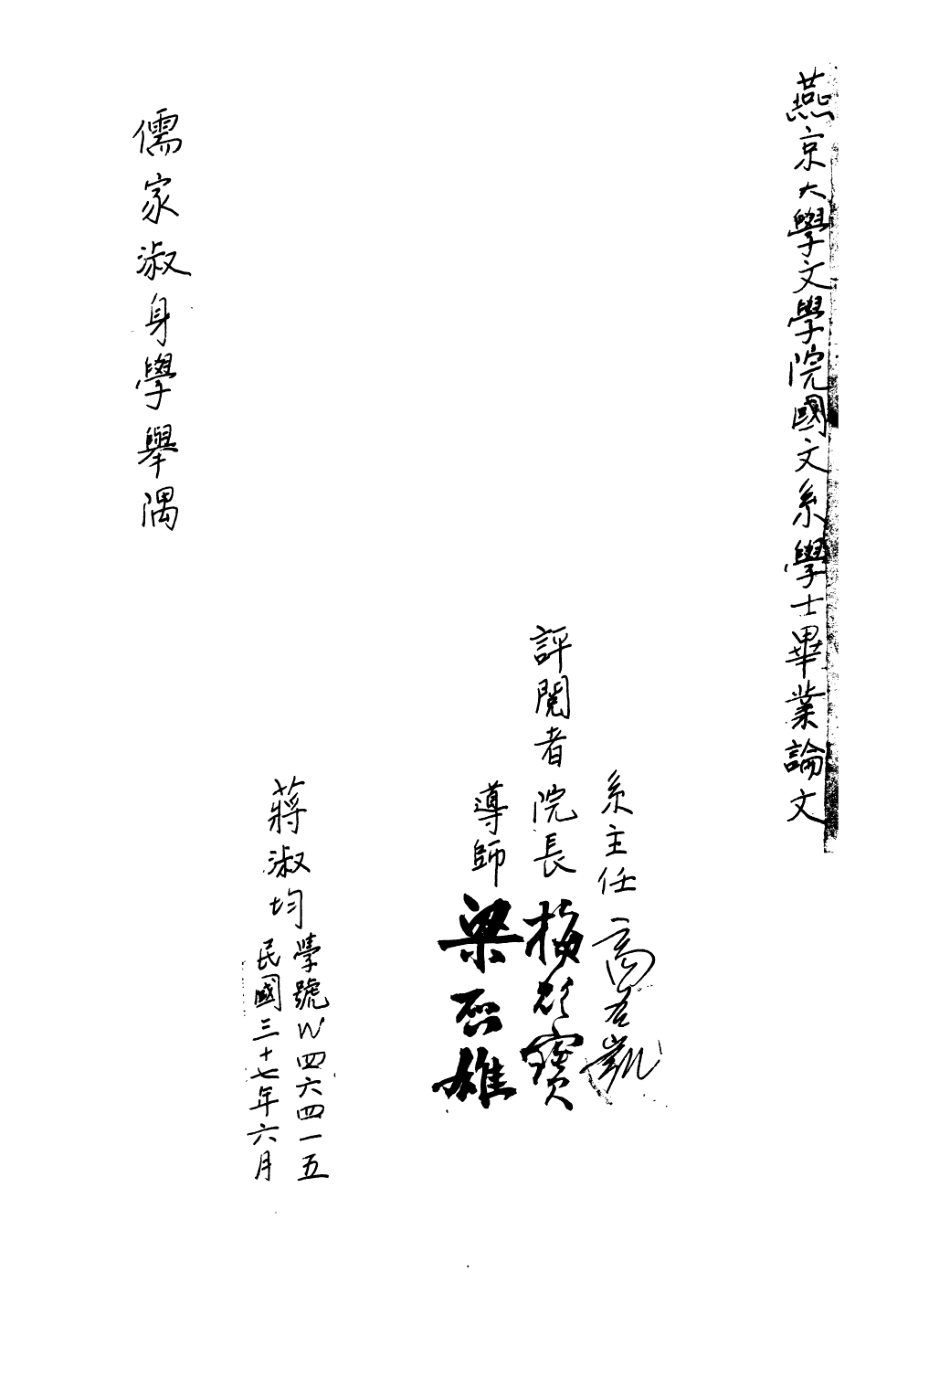 燕京大學文學院國文系學士畢業論文
系主任 高名凱
評閱者 院長 梅貽寶
導師 梁啓雄
學號W四六四一五
蔣淑均
民國三十七年六月
儒家淑身學舉隅